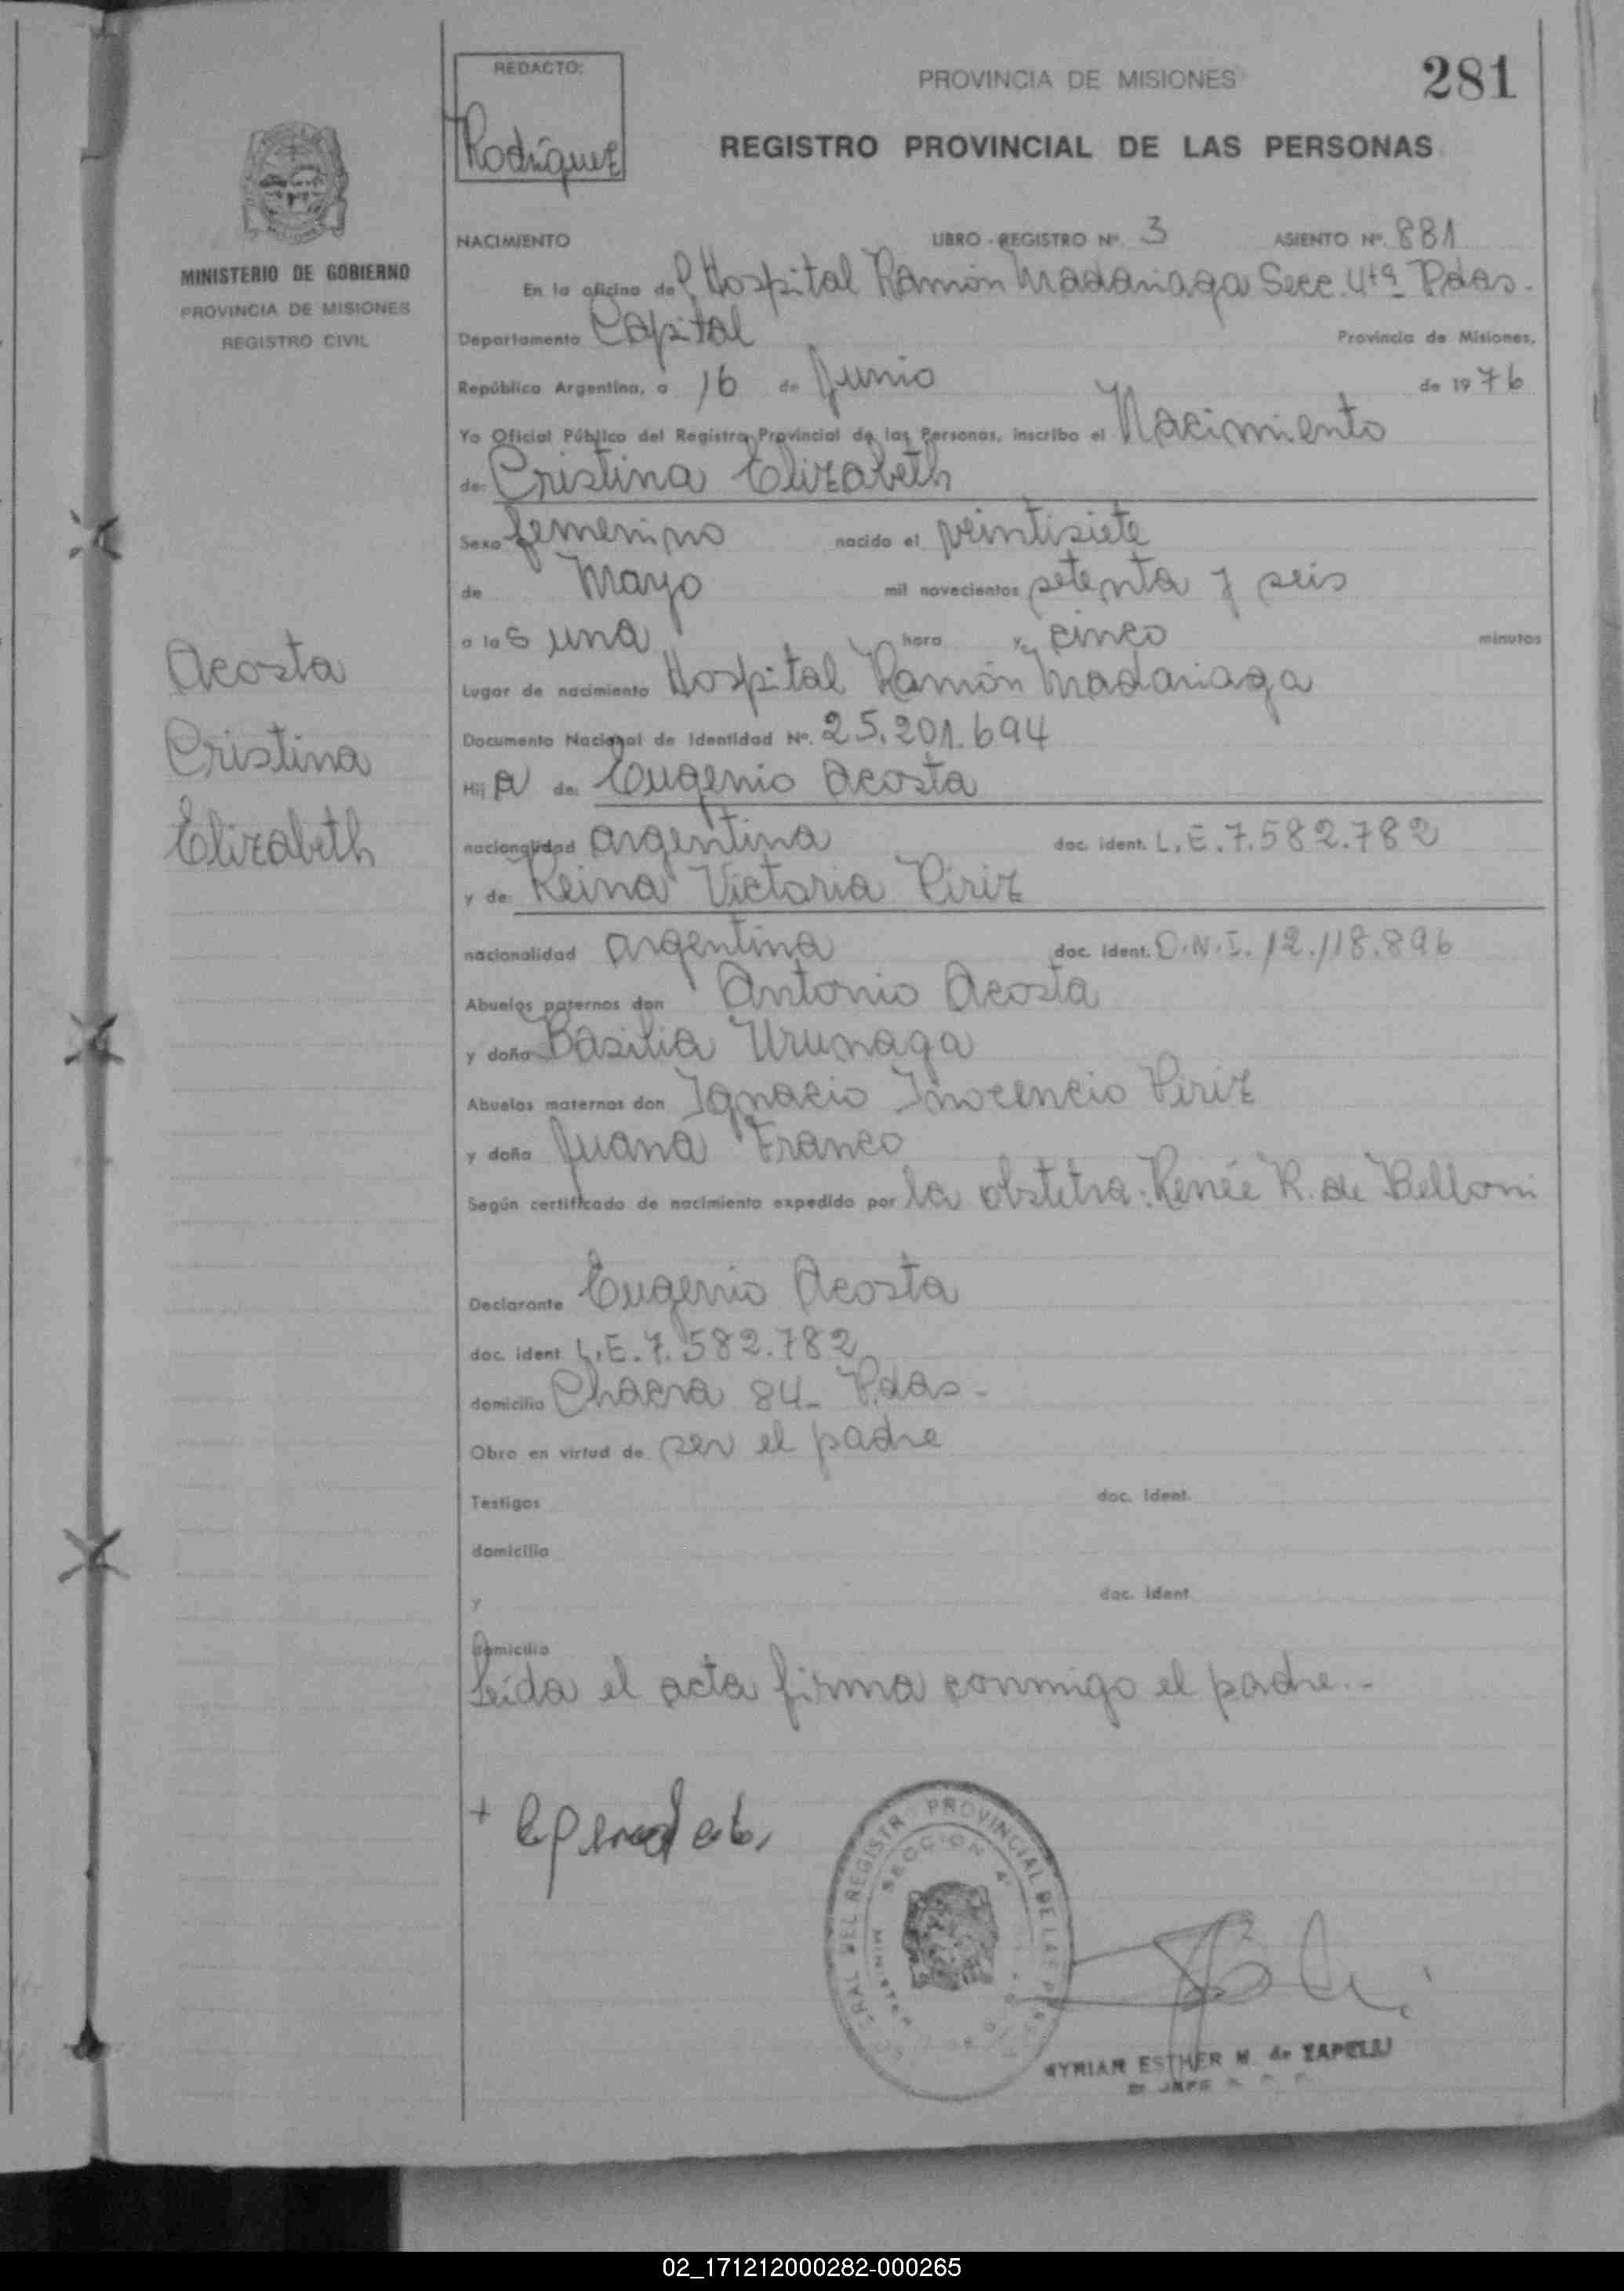 REDACTO:
Rodríguez
PROVINCIA DE MISIONES
281
REGISTRO PROVINCIAL DE LAS PERSONAS
MINISTERIO DE GOBIERNO
PROVINCIA DE MISIONES
REGISTRO CIVIL
Acosta
Cristina
Elizabeth
NACIMIENTO LIBRO - REGISTRO Nº. 3 ASIENTO Nº. 881
En la oficina del Hospital Ramón Madariaga Secc. 4ta Pdas.
Departamento Capital Provincia de Misiones,
República Argentina, a 16 de Junio de 1976
Yo Oficial Público del Registro Provincial de las Personas, inscribo el Nacimiento
de: Cristina Elizabeth
Sexo femenino nacido el veintisiete
de Mayo mil novecientos setenta y seis
a las una hora y cinco minutos
Lugar de nacimiento Hospital Ramón Madariaga
Documento Nacional de Identidad Nº. 25.201.694
Hija de: Eugenio Acosta
nacionalidad argentina doc. ident. L.E. 7.582.782
y de: Reina Victoria Piriz
nacionalidad argentina doc. ident. D.N.I. 12.118.896
Abuelos paternos don Antonio Acosta
y doña Basilia Urunaga
Abuelos maternos don Ignacio Inocencio Piriz
y doña Juana Franco
Según certificado de nacimiento expedido por la obstetra: Renée R. de Belloni
Declarante Eugenio Acosta
doc. ident. L.E. 7.582.782
domicilio Chacra 84- Pdas-
Obra en virtud de ser el padre
Testigos doc. ident.
domicilio
y doc. ident.
domicilio
Leída el acta firma conmigo el padre.-
REGISTRO PROVINCIAL DE LAS
SECCION 4
MYRIAM ESTHER M. de ZAPELLI
02_171212000282-000265